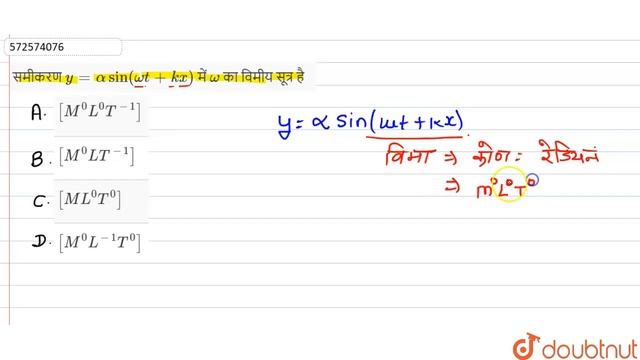 572574076
समीकरण y = α sin(ωt + kx) में ω का विमीय सूत्र है
A. [M⁰L⁰T⁻¹]
B. [M⁰LT⁻¹]
C. [ML⁰T⁰]
D. [M⁰L⁻¹T⁰]
y = α sin(ωt + kx)
विमा ⇒ कोण = रेडियन
⇒ M⁰L⁰T⁰
doubtnut